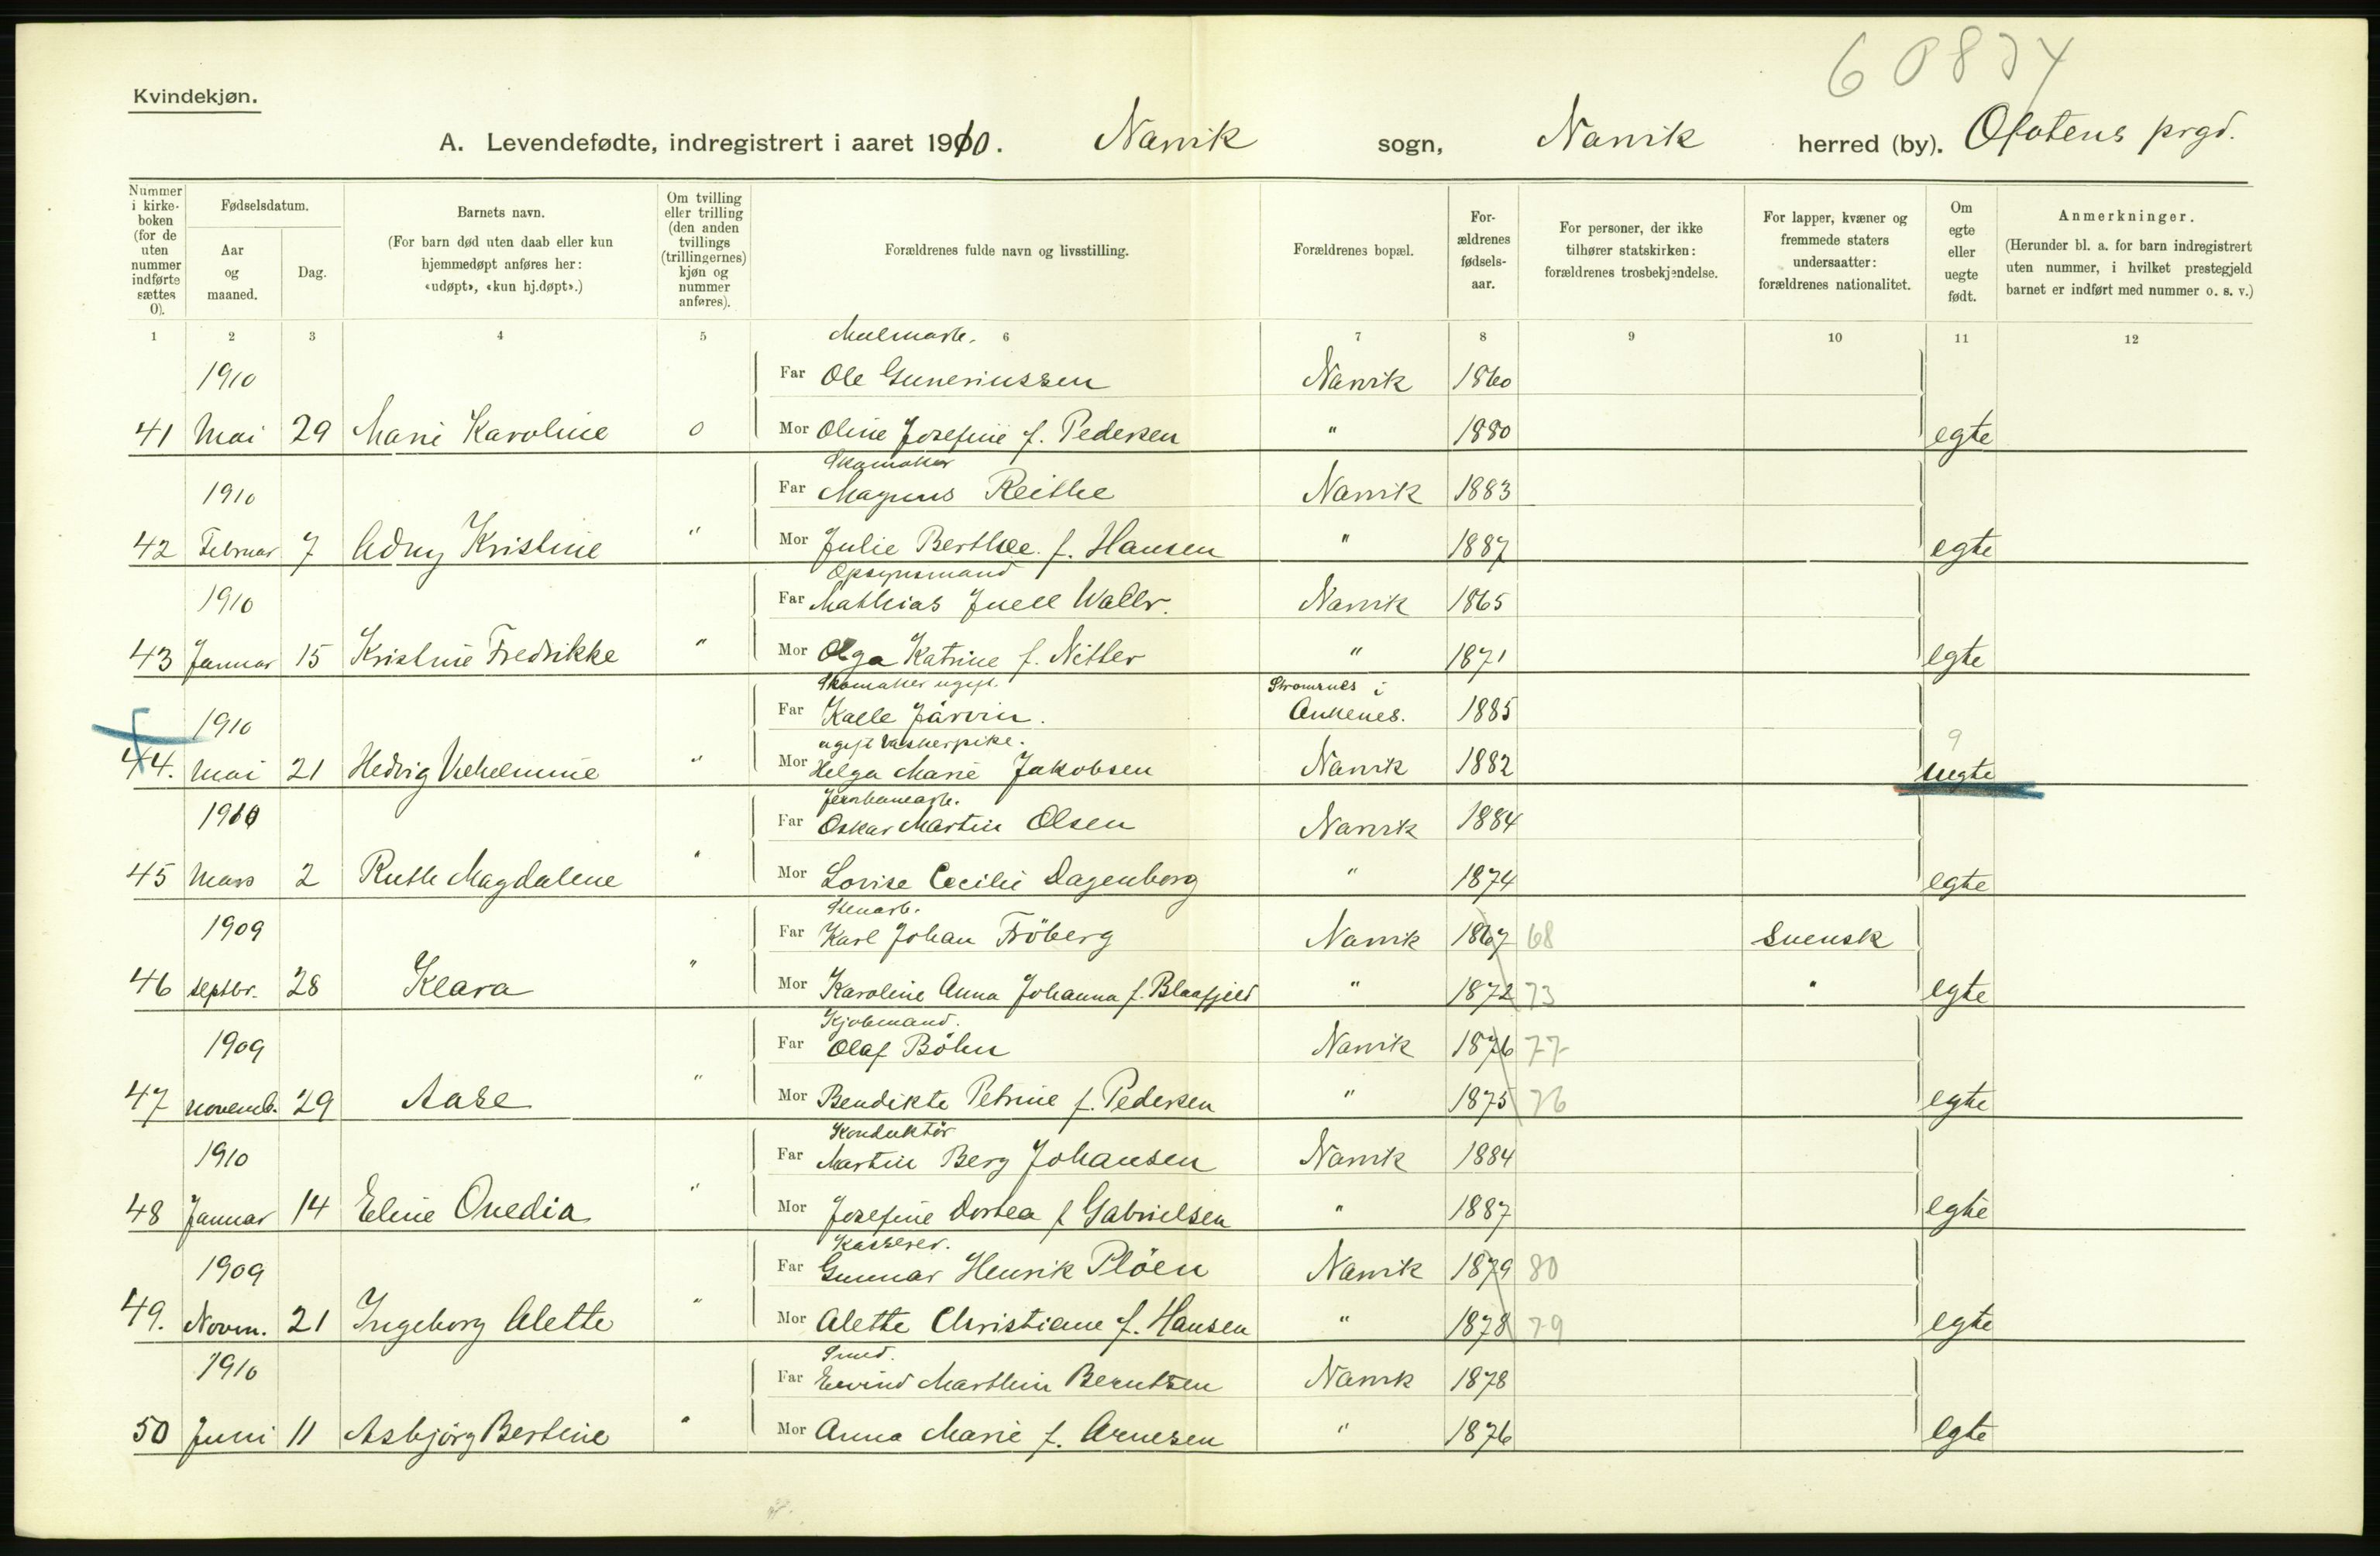 60874
Kvindekjøn.
A. Levendefødte, indregistrert i aaret 1910. Narvik sogn, Narvik herred (by). Ofotens prgd.
Nummer i kirkeboken (for de uten nummer indførte sættes 0).
Fødselsdatum.
Aar og maaned.
Dag.
Barnets navn.
(For barn død uten daab eller kun hjemmedøpt anføres her: «udøpt», «kun hj.døpt».)
Om tvilling eller trilling (den anden tvillings (trillingernes) kjøn og nummer anføres).
Forældrenes fulde navn og livsstilling.
Forældrenes bopæl.
For-ældrenes fødsels-aar.
For personer, der ikke tilhører statskirken: forældrenes trosbekjendelse.
For lapper, kvæner og fremmede staters undersaatter: forældrenes nationalitet.
Om egte eller uegte født.
Anmerkninger.
(Herunder bl. a. for barn indregistrert uten nummer, i hvilket prestegjeld barnet er indført med nummer o. s. v.)
1 2 3 4 5 6 7 8 9 10 11 12
Malmarb.
1910 Far Ole Guneriussen Narvik 1860
41 Mai 29 Marie Karoline 0 Mor Oline Josefine f. Pedersen " 1880 egte
Skomaker
1910 Far Magnus Reithe Narvik 1883
42 Februar 7 Adny Kristine " Mor Julie Berthee f. Hansen " 1887 egte
Opsynsmand
1910 Far Mathias Juell Wallr. Narvik 1865
43 Januar 15 Kristine Fredrikke " Mor Olga Katrine f. Nitter " 1871 egte
Skomaker ugift. Stromsnes i
1910 Far Kalle Järvin. Ankenes. 1885
ugift vaskerpike. 9
44. Mai 21 Hedvig Vilhelmine " Mor Helga Marie Jakobsen Narvik 1882 uegte
Jernbanearb.
1910 Far Oskar Martin Olsen Narvik 1884
45 Mars 2 Ruth Magdalene " Mor Lovise Cecilie Dagenborg " 1874 egte
Stenarb.
1909 Far Karl Johan Fröberg Narvik 1867 68 Svensk
46 septbr. 28 Klara " Mor Karoline Anna Johanna f. Blaafjeld " 1872 73 " egte
Kjøbmand.
1909 Far Olaf Böhn Narvik 1876 77
47 novemb. 29 Aase " Mor Bendikte Petrine f. Pedersen " 1875 76 egte
Konduktör
1910 Far Martin Berg Johansen Narvik 1884
48 Januar 14 Eline Ovedia " Mor Josefine Dortea f Gabrielsen " 1887 egte
Kasserer.
1909 Far Gunnar Henrik Plöen Narvik 1879 80
49. Novm. 21 Ingeborg Alette " Mor Alette Christiane f. Hansen " 1878 79 egte
Smed.
1910 Far Eivind Marthin Berntsen Narvik 1878
50 Juni 11 Asbjörg Bertine " Mor Anna Marie f. Arnesen " 1876 egte